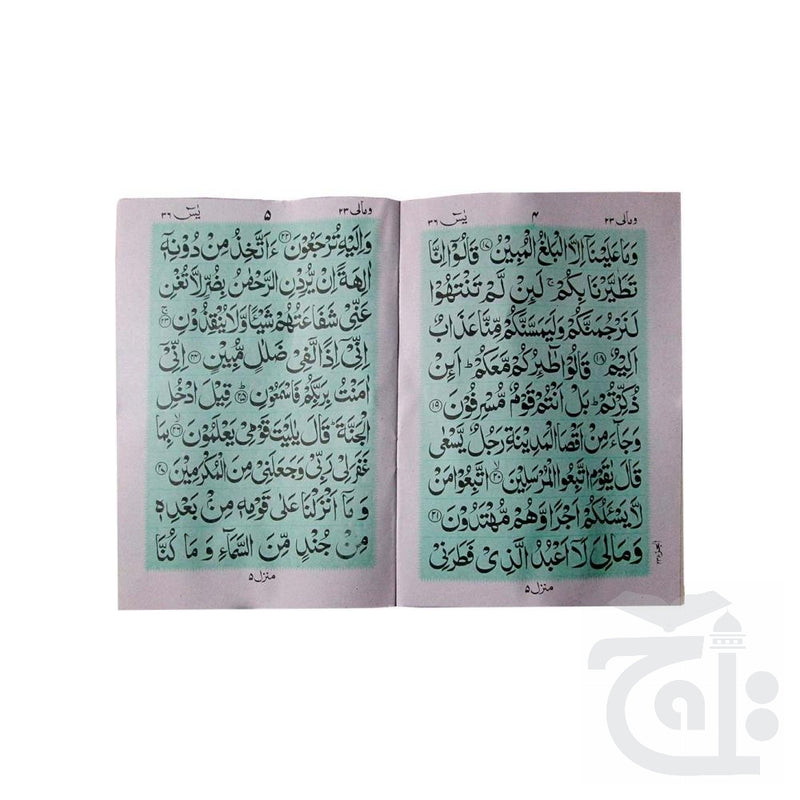 ومالی ۲۳ ۴ یٰسٓ ۳۶
وَمَا عَلَيْنَا اِلَّا الْبَلٰغُ الْمُبِيْنُ ۝۱۷ قَالُوْۤا اِنَّا
تَطَيَّرْنَا بِكُمْ ۚ لَىِٕنْ لَّمْ تَنْتَهُوْا
لَنَرْجُمَنَّكُمْ وَلَيَمَسَّنَّكُمْ مِّنَّا عَذَابٌ
اَلِيْمٌ ۝۱۸ قَالُوْا طَآىِٕرُكُمْ مَّعَكُمْ ؕ اَىِٕنْ
ذُكِّرْتُمْ ؕ بَلْ اَنْتُمْ قَوْمٌ مُّسْرِفُوْنَ ۝۱۹
وَجَآءَ مِنْ اَقْصَا الْمَدِيْنَةِ رَجُلٌ يَّسْعٰى
قَالَ يٰقَوْمِ اتَّبِعُوا الْمُرْسَلِيْنَ ۝۲۰ اتَّبِعُوْا مَنْ
لَّا يَسْـَٔلُكُمْ اَجْرًا وَّهُمْ مُّهْتَدُوْنَ ۝۲۱
وَمَالِيَ لَاۤ اَعْبُدُ الَّذِيْ فَطَرَنِيْ
منزل ۵
ومالی ۲۳ ۵ یٰسٓ ۳۶
وَاِلَيْهِ تُرْجَعُوْنَ ۝۲۲ ءَاَتَّخِذُ مِنْ دُوْنِهٖۤ
اٰلِهَةً اِنْ يُّرِدْنِ الرَّحْمٰنُ بِضُرٍّ لَّا تُغْنِ
عَنِّيْ شَفَاعَتُهُمْ شَيْـًٔا وَّلَا يُنْقِذُوْنِ ۝۲۳
اِنِّيْۤ اِذًا لَّفِيْ ضَلٰلٍ مُّبِيْنٍ ۝۲۴ اِنِّيْۤ
اٰمَنْتُ بِرَبِّكُمْ فَاسْمَعُوْنِ ۝۲۵ قِيْلَ ادْخُلِ
الْجَنَّةَ ؕ قَالَ يٰلَيْتَ قَوْمِيْ يَعْلَمُوْنَ ۝۲۶ بِمَا
غَفَرَ لِيْ رَبِّيْ وَجَعَلَنِيْ مِنَ الْمُكْرَمِيْنَ ۝۲۷
وَمَاۤ اَنْزَلْنَا عَلٰى قَوْمِهٖ مِنْۢ بَعْدِهٖ
مِنْ جُنْدٍ مِّنَ السَّمَآءِ وَمَا كُنَّا
منزل ۵